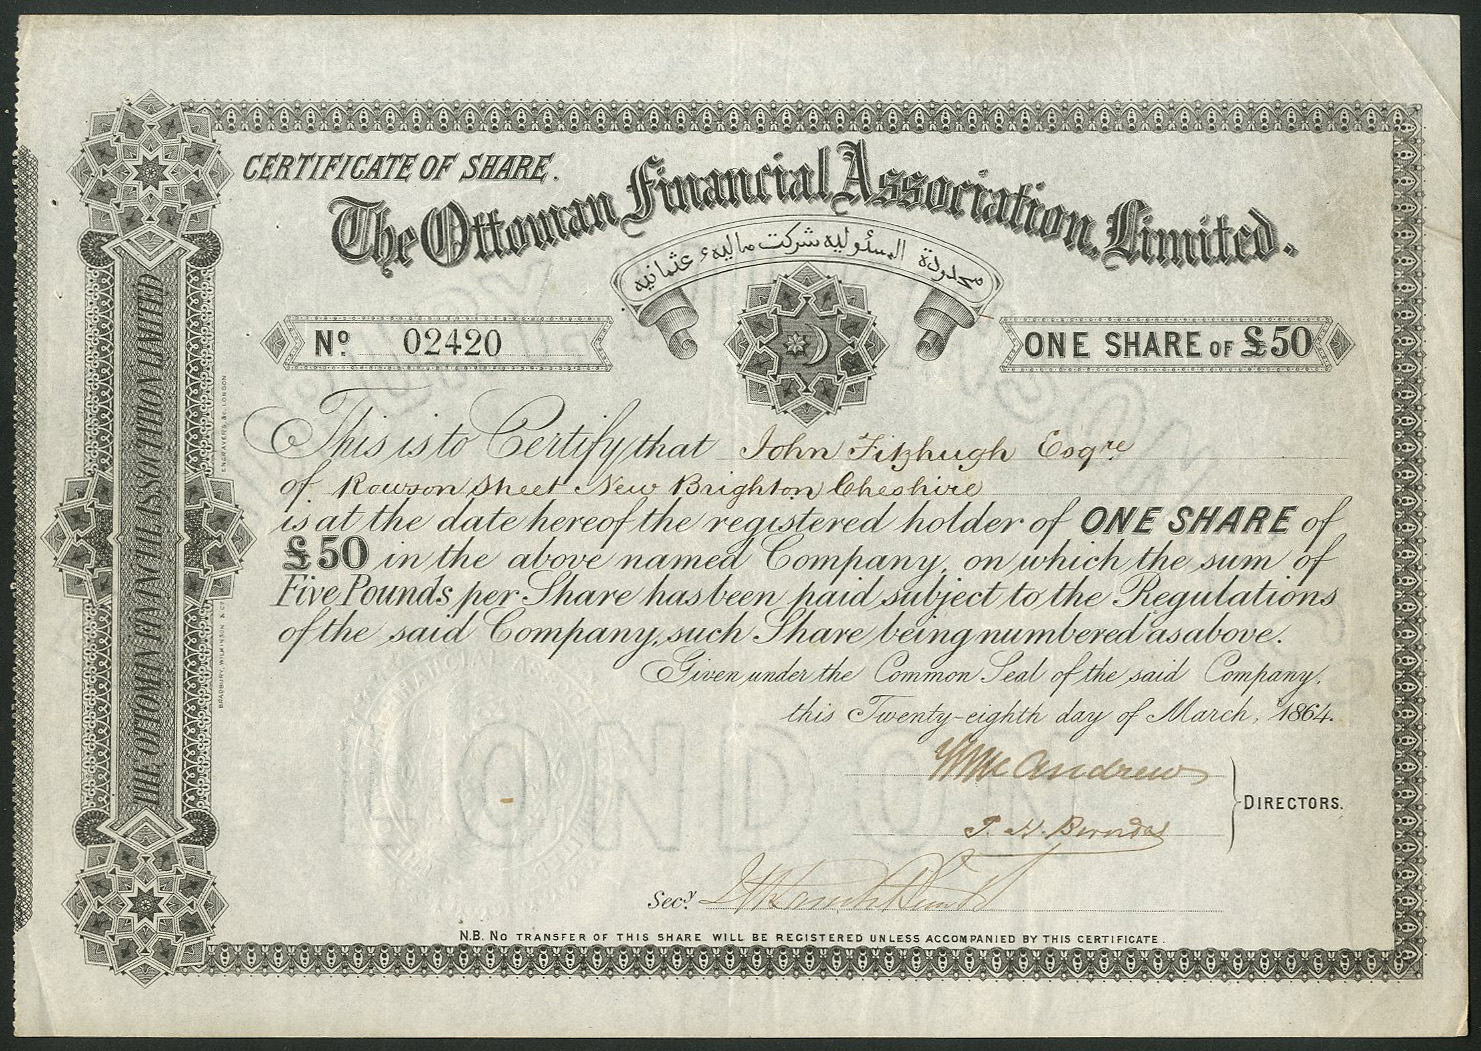 CERTIFICATE OF SHARE.
The Ottoman Financial Association, Limited.
محدودة المسئوليه شركت ماليهء عثمانيه
No 02420
ONE SHARE OF £50
This is to Certify that John Fitzhugh Esqre
of Rowson Street New Brighton Cheshire
is at the date hereof the registered holder of ONE SHARE of
£50 in the above named Company, on which the sum of
Five Pounds per Share has been paid subject to the Regulations
of the said Company, such Share being numbered as above.
Given under the Common Seal of the said Company,
this Twenty-eighth day of March, 1864.
McAndrew
DIRECTORS.
J. H.
Secy
N.B. No TRANSFER OF THIS SHARE WILL BE REGISTERED UNLESS ACCOMPANIED BY THIS CERTIFICATE.
THE OTTOMAN FINANCIAL ASSOCIATION LIMITED
BRADBURY, WILKINSON, & Co. ENGRAVERS &c. LONDON
LONDON